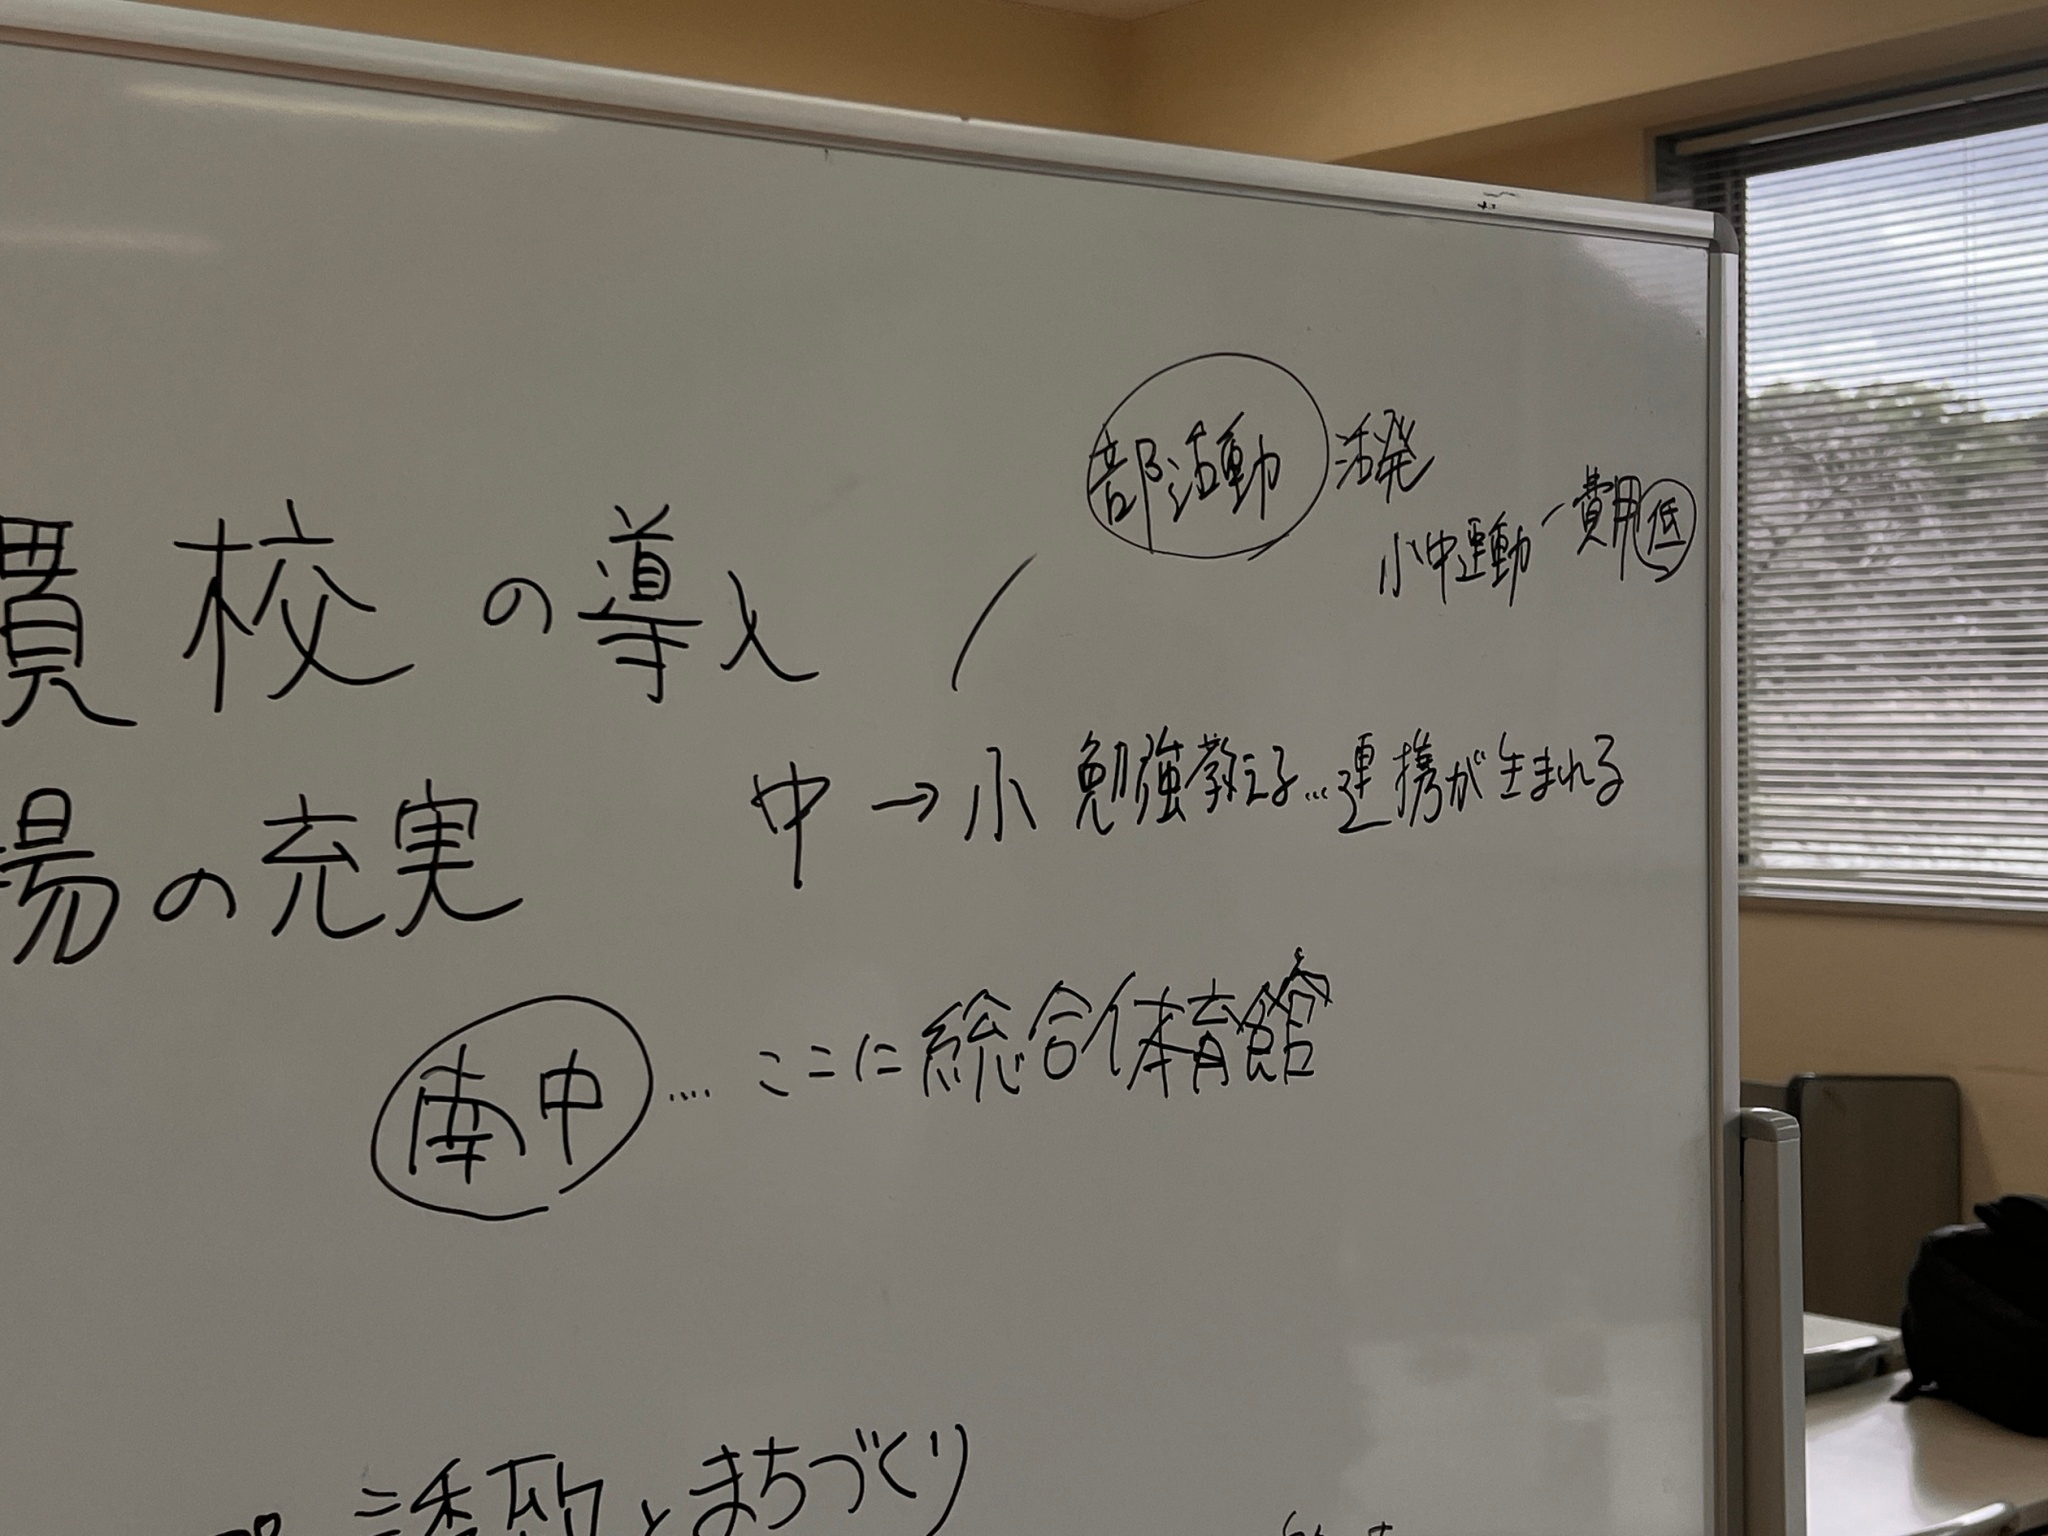 部活動 活発
小中運動 費用低
貫校の導入
中→小 勉強教える…連携が生まれる
場の充実
南中 …. ここに総合体育館
誘致とまちづくり